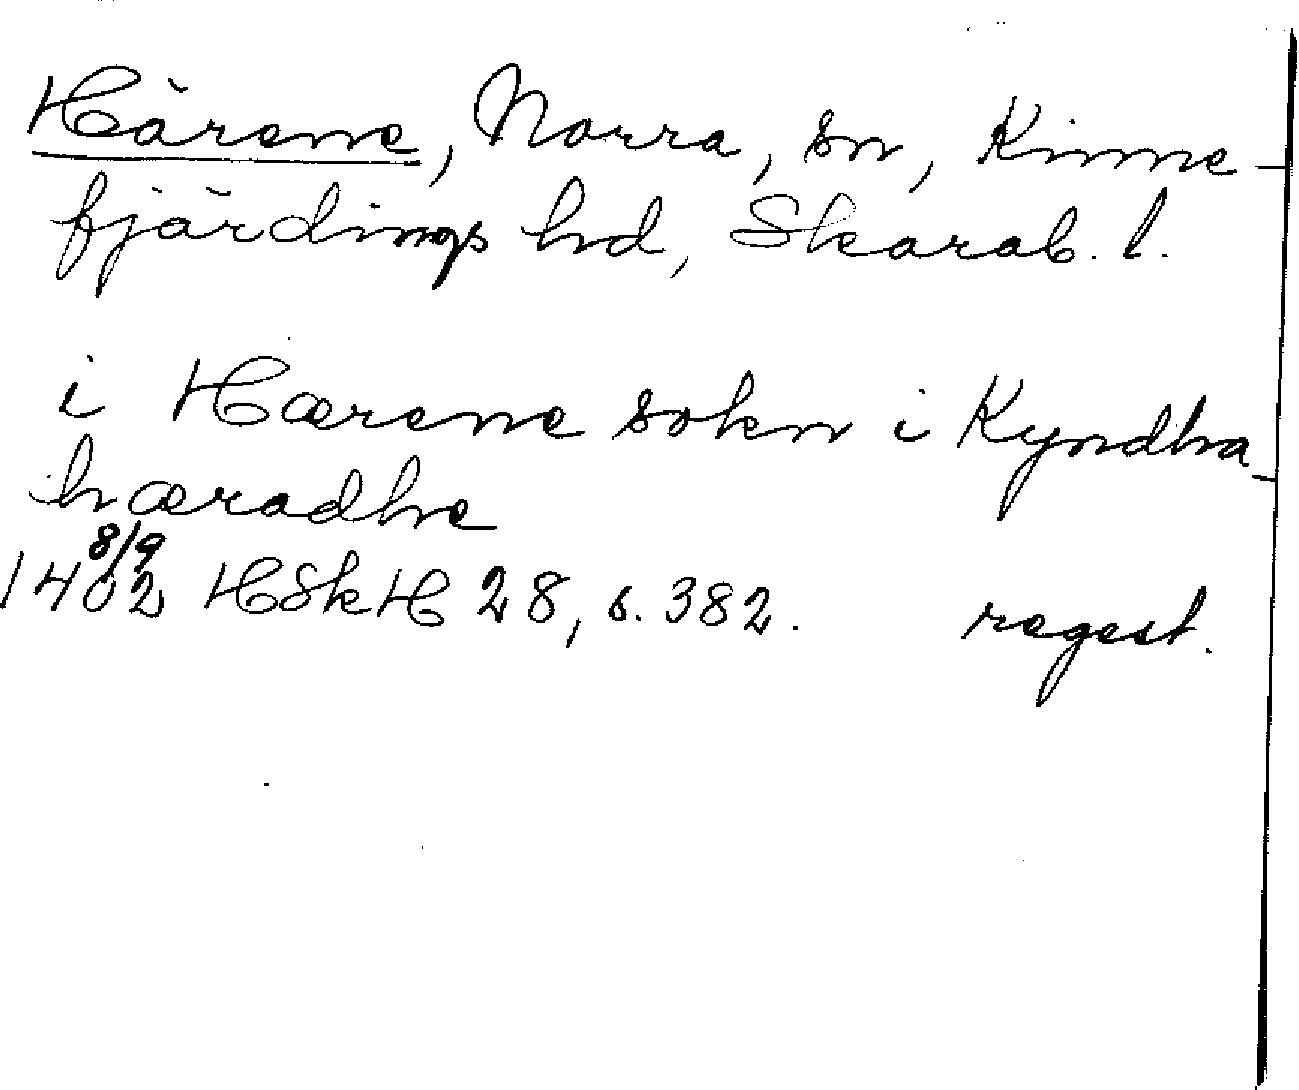 Härene, Norra, sn, Kinne-
fjärdings hd, Skarab. l.
i Hærene sokn i Kyndha-
hæradhe
8/9
1402 HSkH 28, s. 382. regest.